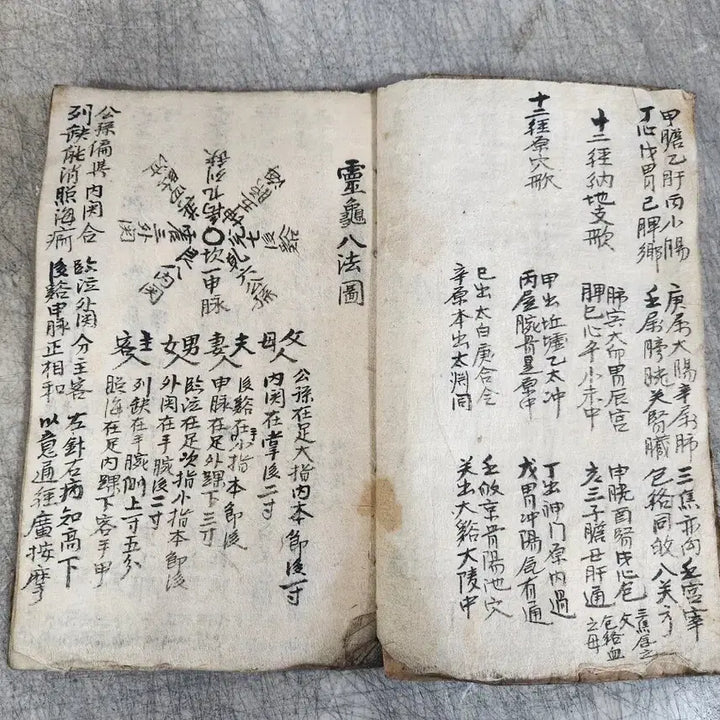 甲膽乙肝丙小腸
丁心戊胃己脾鄉
庚屬大腸辛屬肺
壬屬膀胱癸腎臟
三焦亦向壬宮寄
包絡同收入癸方
十二經納地支歌
肺寅大卯胃辰宮
脾巳心午小未中
申胱酉腎戌心包
亥三子膽丑肝通
父
包絡血
之母
十二經原穴歌
甲出坵墟乙太冲
丙屬腕骨是原中
丁出神门原内過
戊胃冲陽氣有通
己出太白庚合合
辛原本出太淵同
壬收京骨陽池穴
癸出大谿大陵中
靈龜八法圖
九列缺
乾六公孫
坎一申脉
三外関
八内関
父 公孫在足大指内本節後一寸
母 内関在掌後二寸
夫 後谿在手小指本節後
妻 申脉在足外踝下三寸
男 臨泣在足次指小指本節後
女 外関在手腕後二寸
主 列缺在手腕側上寸五分
客 照海在足内踝下容手甲
人
人
人
人
公孫偏與内関合
列缺能消照海痾
臨泣外関分主客
後谿申脉正相和
左針右病知高下
以意通經廣按摩